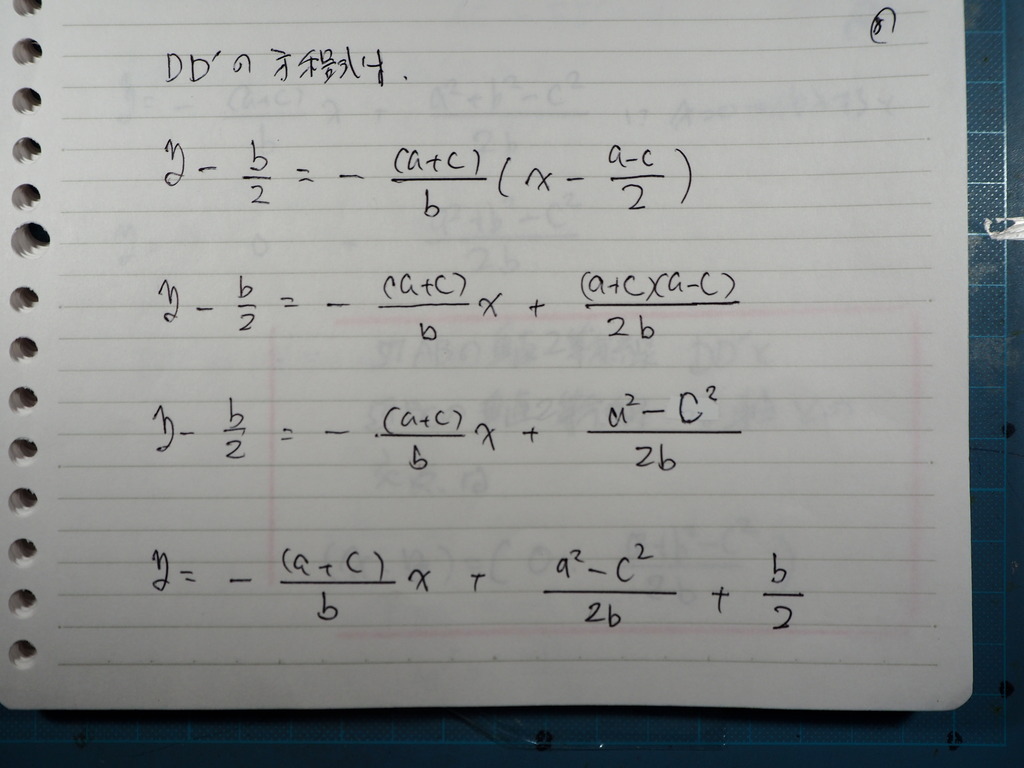 DD'の方程式は.
y - b/2 = - (a+c)/b (x - a-c/2)
y - b/2 = - (a+c)/b x + (a+c)(a-c)/2b
y - b/2 = - (a+c)/b x + a²-c²/2b
y = - (a+c)/b x + a²-c²/2b + b/2